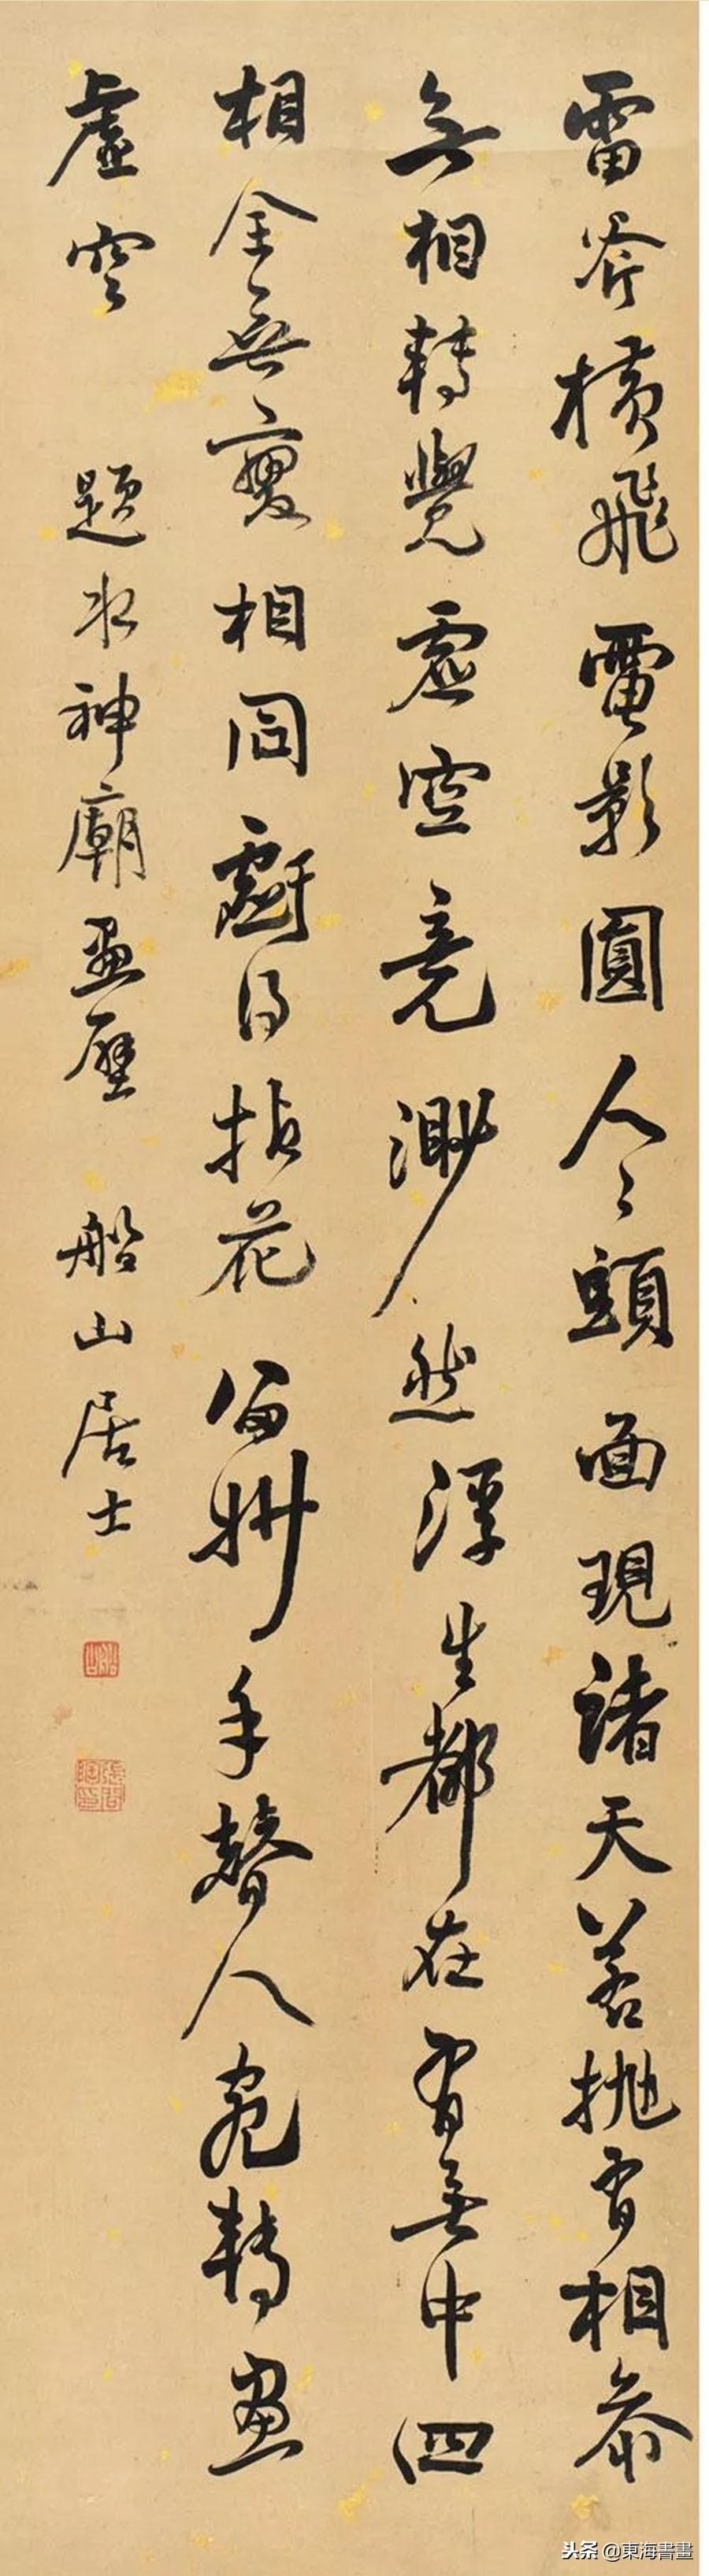 雷斧橫飛電影圓人々頭面現諸天若拋有相參
無相轉覺虛空竟渺然浮生都在有無中四
相全無變相同得拈花手替人宛轉畫
虛空 題水神廟畫壁 船山居士
船山
張問陶印
头条 @東海書畫